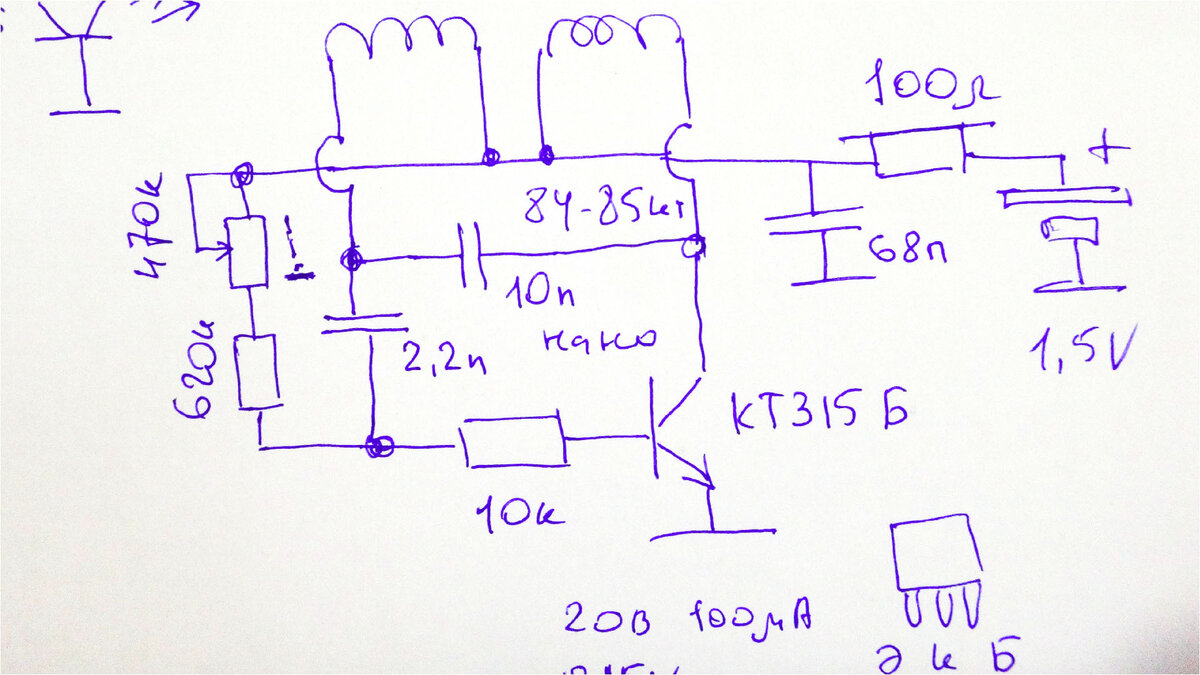 100Ω
+
470к
!
84-85кг
68п
10п
нано
1,5V
2,2п
620к
КТ315Б
10к
20В 100мА
Э К Б